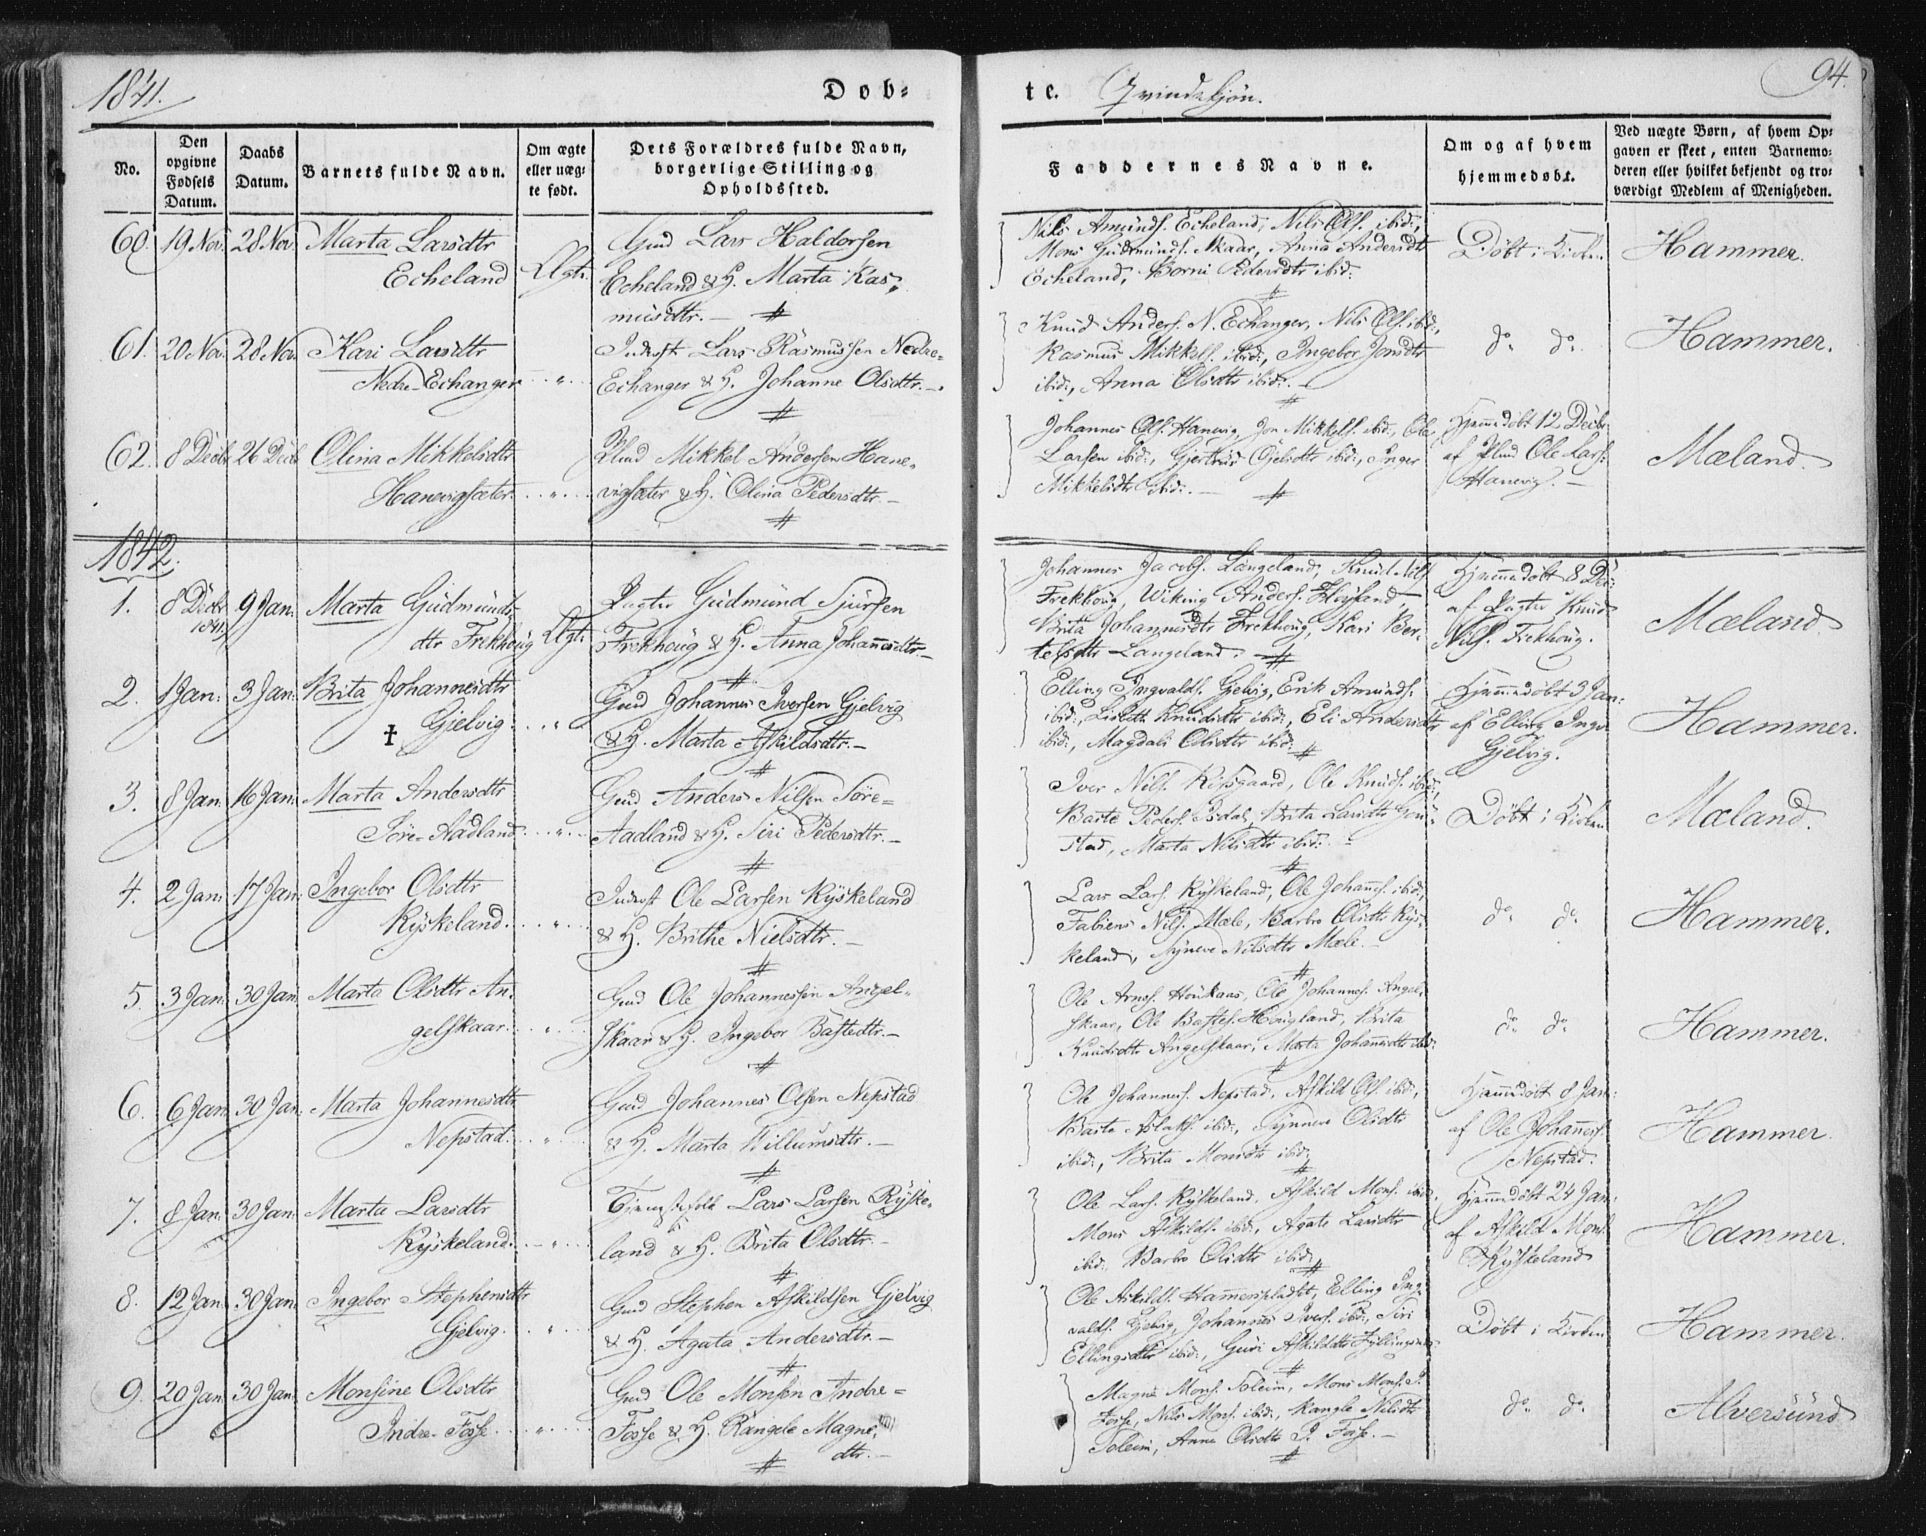 1841.
Døb-
te. Qvindekjön.
94.
No.
Den opgivne Fødsels Datum.
Daabs Datum.
Barnets fulde Navn.
Om ægte eller uægte født.
Dets Forældres fulde Navn, borgerlige Stilling og Opholdssted.
Faddernes Navne.
Om og af hvem hjemmedøbt.
Ved uægte Børn, af hvem Opgaven er skeet, enten Barnemoderen eller hvilket bekjendt og troværdigt Medlem af Menigheden.
60. 19 Nov. 28 Nov. Marta Larsdtr
Echeland Ægt.
Gmd Lars Haldorsen
Echeland & H. Marta Ras-
musdtr.
Nils Amunds. Echeland, Nils Ols. ibid:,
Mons Gudmunds. Skaar, Anna Andersdtr
Echeland, Borni Pedersdtr ibid:
Döbt i Kirken
Hammer.
61. 20 Nov. 28 Nov. Kari Larsdtr
Nedre-Echanger "
Inderst Lars Rasmussen Nedre-
Echanger & H. Johanne Olsdtr.
Knud Anders. N. Echanger, Nils Ols. ibid:,
Rasmus Mikkels. ibid:, Ingebor Jonsdtr
ibid:, Anna Olsdtr ibid:.
do do
Hammer.
62. 8 Decbr 26 Decb Olina Mikkelsdtr
Hanevigsæter "
Plmd Mikkel Andersen Hane-
vigsæter & H. Olina Pedersdtr.
Johannes Ols. Hanevig, Jon Mikkels. ibid:, Ole
Larsen ibid:, Gjertrud Ojelsdtr ibid:, Inger
Mikkelsdtr ibid:.
Hjemmedöbt 12 Decbr:
af Plmd Ole Lars.
Hanevig.
Mæland.
1842.
1. 8 Decbr 1841. 9 Jan. Marta Gudmunds-
dtr Frekhoug Ægt.
Pagter Gudmund Sjursen
Frekhoug & H. Anna Johannesdtr.
Johannes Jacobs. Langeland, Knud Nils.
Frekhoug, Wiking Anders. Höyland,
Brita Johannesdtr Frekhoug, Kari Ber-
telsdtr Langeland.
Hjemmedöbt 8 Dec:
af Pagter Knud
Nils. Frekhoug.
Mæland
2. 1 Jan: 3 Jan: Brita Johannesdtr
Gjelvig. "
†
Gmd Johannes Iversen Gjelvig
& H. Marta Askildsdtr.
Elling Ingvalds. Gjelvig, Erik Amunds.
ibid:, Lisbeth Knudsdtr ibid:, Eli Andersdtr
ibid:, Magdali Olsdtr ibid:
Hjemmedöbt 3 Jan:
af Elling Ingv.
Gjelvig.
Hammer.
3. 8 Jan: 16 Jan: Marta Andersdtr
Söre-Aadland "
Gmd Anders Nilsen Söre-
Aadland & H. Siri Pedersdtr.
Iver Nils. Risgaard, Ole Knuds. ibid:,
Baste Peders. Isdal, Brita Larsdtr
stad, Marta Nilsdtr ibid:
Döbt i Kirken
Mæland.
4. 2 Jan: 17 Jan: Ingebor Olsdtr
Ryskeland. "
Inderst Ole Larsen Ryskeland
& H. Brithe Nielsdtr.
Lars Lars. Ryskeland, Ole Johannes. ibid:,
Fabiens Nils. Mæle, Barbro Olsdtr Rys-
keland, Synneve Nilsdtr Mæle.
do do
Hammer.
5. 3 Jan: 30 Jan: Marta Olsdtr An-
gelskaar. "
Gmd Ole Johannessen Angel-
skaar & H. Ingebor Bastedtr.
Ole Arnes. Houkaas, Ole Johannes. Angel-
skaar, Ole Bastes. Hougland, Brita
Knudsdtr Angelskaar, Marta Johannesdtr ibid:
do do
Hammer.
6. 6 Jan: 30 Jan: Marta Johannesdtr
Nepstad. "
Gmd Johannes Olsen Nepstad
& H. Marta Willumsdtr.
Ole Johanness. Nepstad, Askild Ols. ibid:,
Baste Aslaks. ibid:, Synneve Olsdtr
ibid:, Brita Monsdtr ibid:
Hjemmedöbt 8 Jan:
af Ole Johanness.
Nepstad.
Hammer.
7. 8 Jan: 30 Jan: Marta Larsdtr
Ryskeland. "
Tjenestefolk Lars Larsen Ryske-
land & H. Brita Olsdtr.
Ole Lars. Ryskeland, Askild Mons. ibid:
Mons Askilds. ibid:, Agate Larsdtr
ibid:, Barbro Olsdtr ibid:
Hjemmedöbt 24 Jan:
af Askild Mons.
Ryskeland
Hammer.
8. 12 Jan: 30 Jan: Ingebor Stephensdtr
Gjelvig. "
Gmd Stephen Askildsen Gjelvig
& H. Agata Andersdtr.
Ole Askilds. Hammerspladset, Elling Ing-
valds. Gjelvig, Johannes Ivers. ibid:, Siri
Ellingsdtr ibid:, Guri Askildsdtr
Döbt i Kirken
Hammer.
9. 20 Jan: 30 Jan: Monsine Olsdtr
Indre-Fosse "
Gmd Ole Monsen Indre-
Fosse & H. Rangele Magne-
dtr.
Magne Mons. Soleim, Mons Mons. I.
Fosse, Nils Mons. ibid:, Rangle Nilsdtr
Soleim, Anne Olsdtr I. Fosse.
do do
Alversund